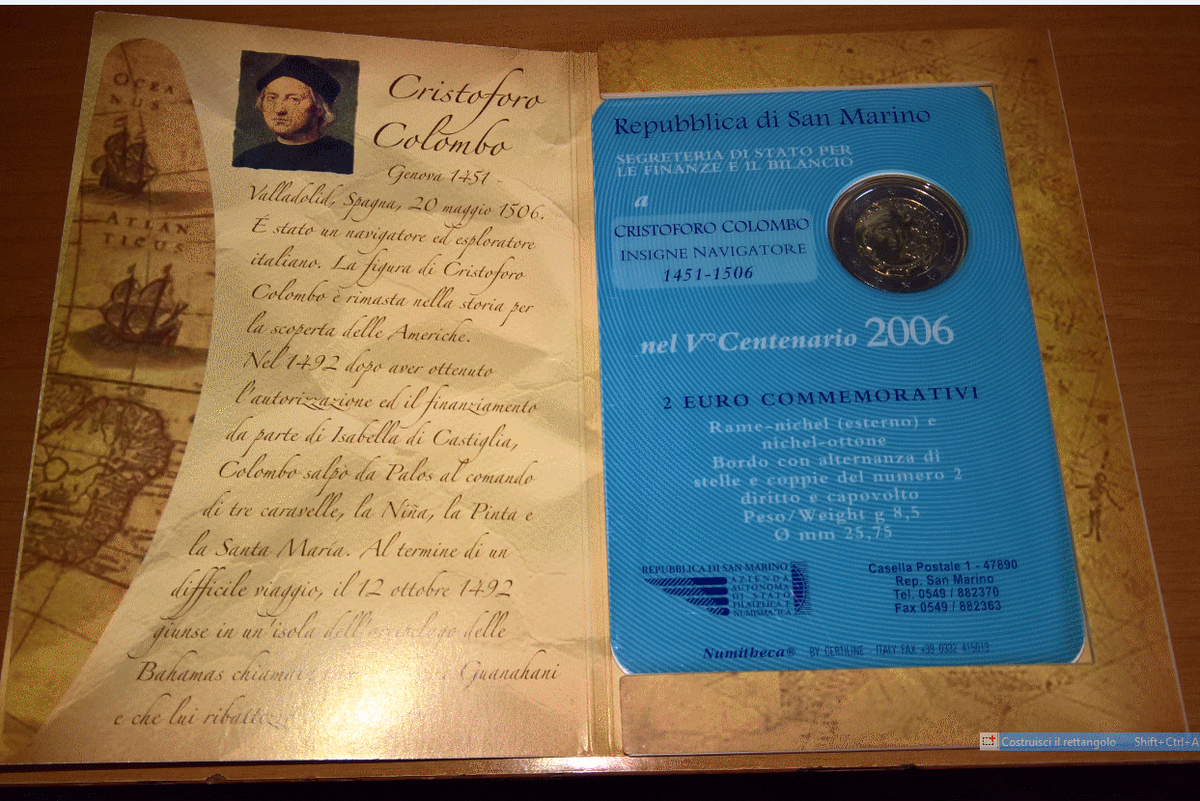 OCEA
NUS
ATLAN
TICUS
Cristoforo
Colombo
Genova 1451 -
Valladolid, Spagna, 20 maggio 1506.
È stato un navigatore ed esploratore
italiano. La figura di Cristoforo
Colombo è rimasta nella storia per
la scoperta delle Americhe.
Nel 1492 dopo aver ottenuto
l'autorizzazione ed il finanziamento
da parte di Isabella di Castiglia,
Colombo salpò da Palos al comando
di tre caravelle, la Niña, la Pinta e
la Santa María. Al termine di un
difficile viaggio, il 12 ottobre 1492
giunse in un'isola dell'arcipelago delle
Bahamas Guanahani
e che lui
Repubblica di San Marino
SEGRETERIA DI STATO PER
LE FINANZE E IL BILANCIO
a
CRISTOFORO COLOMBO
INSIGNE NAVIGATORE
1451-1506
nel V° Centenario 2006
2 EURO COMMEMORATIVI
Rame-nichel (esterno) e
nichel-ottone
Bordo con alternanza di
stelle e coppie del numero 2
diritto e capovolto
Peso/Weight g 8,5
Ø mm 25,75
REPUBBLICA DI SAN MARINO
AZIENDA
AUTONOMA
DI STATO
FILATELICA E
NUMISMATICA
Casella Postale 1 - 47890
Rep. San Marino
Tel. 0549 / 882370
Fax 0549 / 882363
Numitheca® BY CERTILINE ITALY FAX +39 0332 415013
Costruisci il rettangolo Shift+Ctrl+A